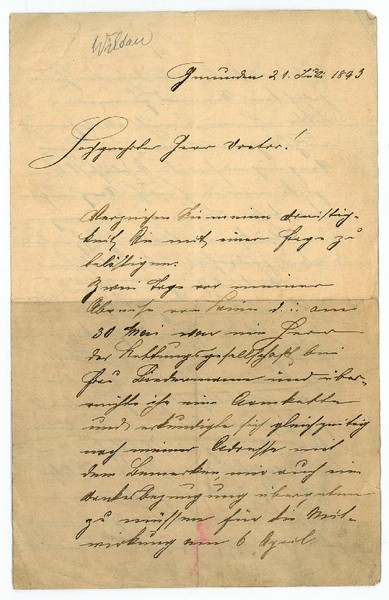 Wildau
Gmunden 21. Juli 1893
Hochgeehrter Herr Doctor!
Verzeihen Sie meine Dreistig-
keit, Sie mit einer Frage zu
belästigen.
Zwei Tage vor meiner
Abreise von Wien d. i. am
30 Mai war ein Herr
der Rettungsgesellschaft bei
Frau Biedermann und über-
reichte ihr eine Armkette
und erkundigte sich gleichzeitig
nach meiner Adresse mit
dem Bemerken, mir auch eine
Dankesbezeugung übergeben
zu müssen für die Mit-
wirkung am 6 April.